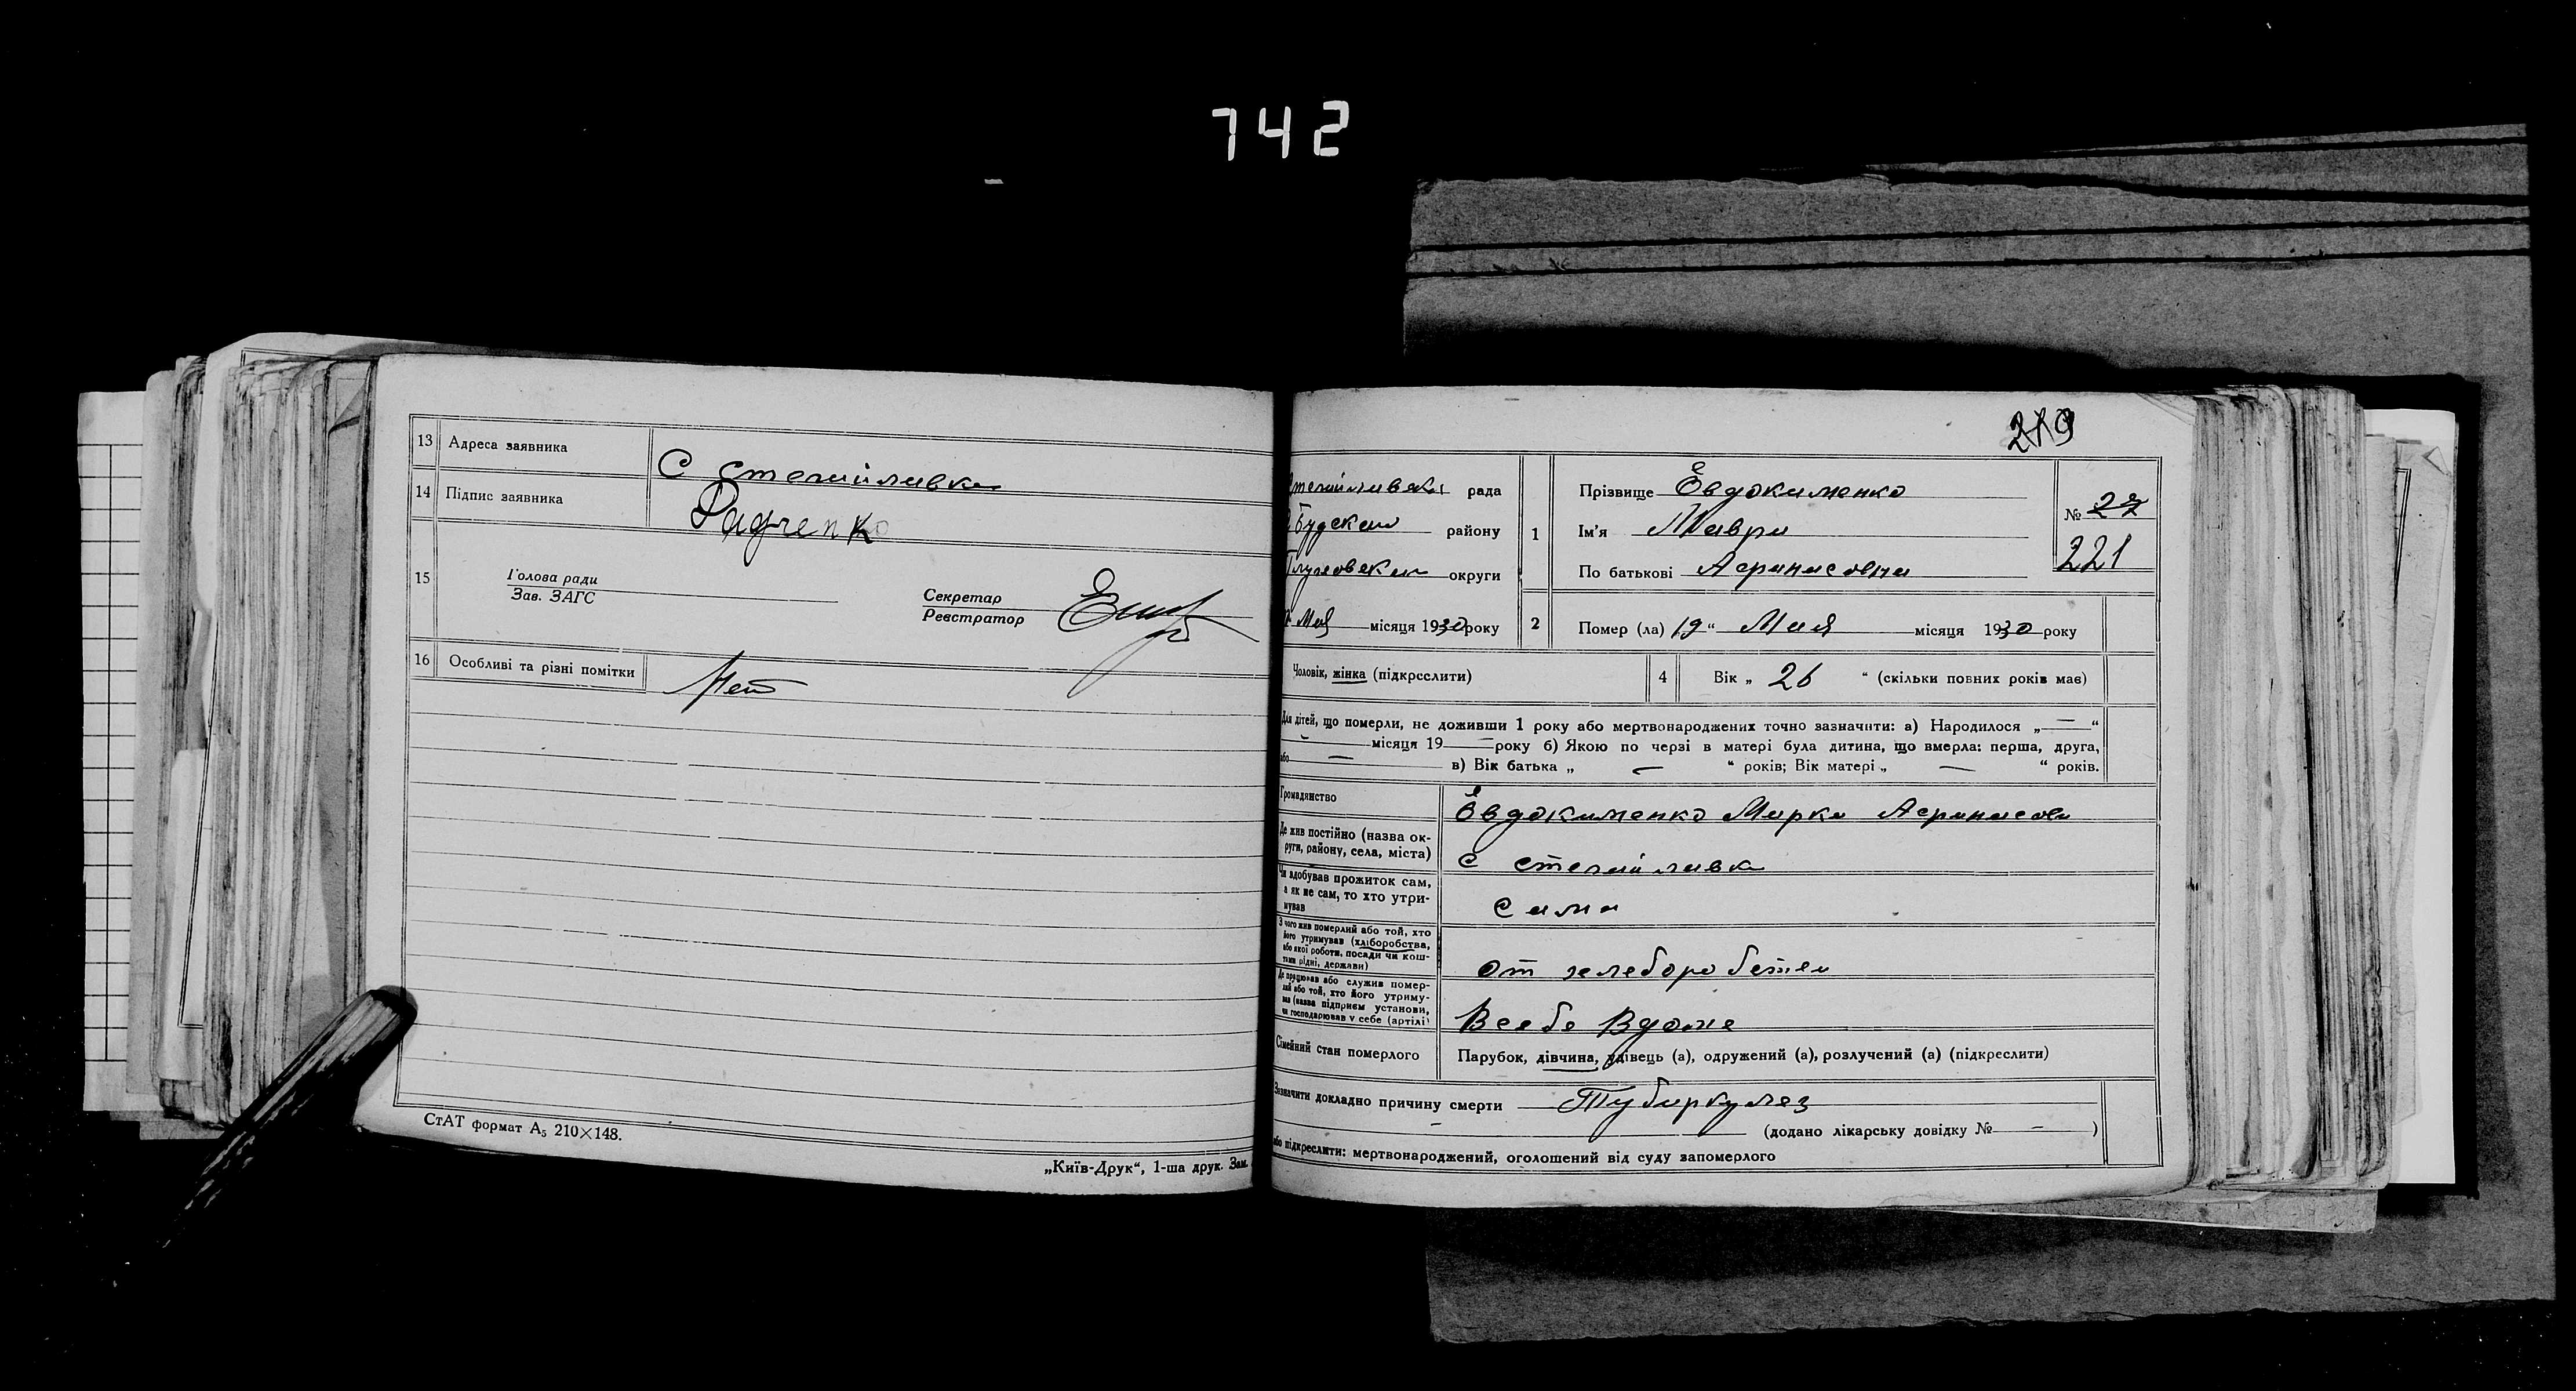 742
13 Адреса заявника С
14 Підпис заявника Радченко
15 Голова ради
Зав. ЗАГС
Секретар
Реєстратор
16 Особливі та різні помітки Нет
СтАТ формат А5 210×148.
„Київ-Друк“, 1-ша друк. Зам.
219
рада
району
округи
Мая місяця 1930 року
1 Прізвище Евдокименко
Ім'я Мавра
По батькові Афанасовна
№ 27
221
2 Помер (ла) 19 “ Мая місяця 1930 року
Чоловік, жінка (підкреслити)
4 Вік „ 26 “ (скільки повних років має)
Для дітей, що померли, не доживши 1 року або мертвонароджених точно зазначити: а) Народилося „ — “
— місяця 19 — року б) Якою по черзі в матері була дитина, що вмерла: перша, друга,
або — в) Вік батька „ — “ років; Вік матері „ — “ років.
Громадянство Евдокименко Марка
Де жив постійно (назва ок-
руги, району, села, міста) с
Чи здобував прожиток сам,
а як не сам, то хто утри-
мував сама
З чого жив померлий або той, хто
його утримував (хліборобства,
або якої роботи, посади чи кош-
тами рідні, держави) от
Де працював або служив помер-
лий або той, хто його утриму-
вав (назва підприєм установи,
чи господарював у себе (артілі) Всебе Вдоме
Сімейний стан померлого Парубок, дівчина, удівець (а), одружений (а), розлучений (а) (підкреслити)
Зазначити докладно причину смерти Туберкулез
— (додано лікарську довідку № — )
або підкреслити: мертвонароджений, оголошений від суду запомерлого